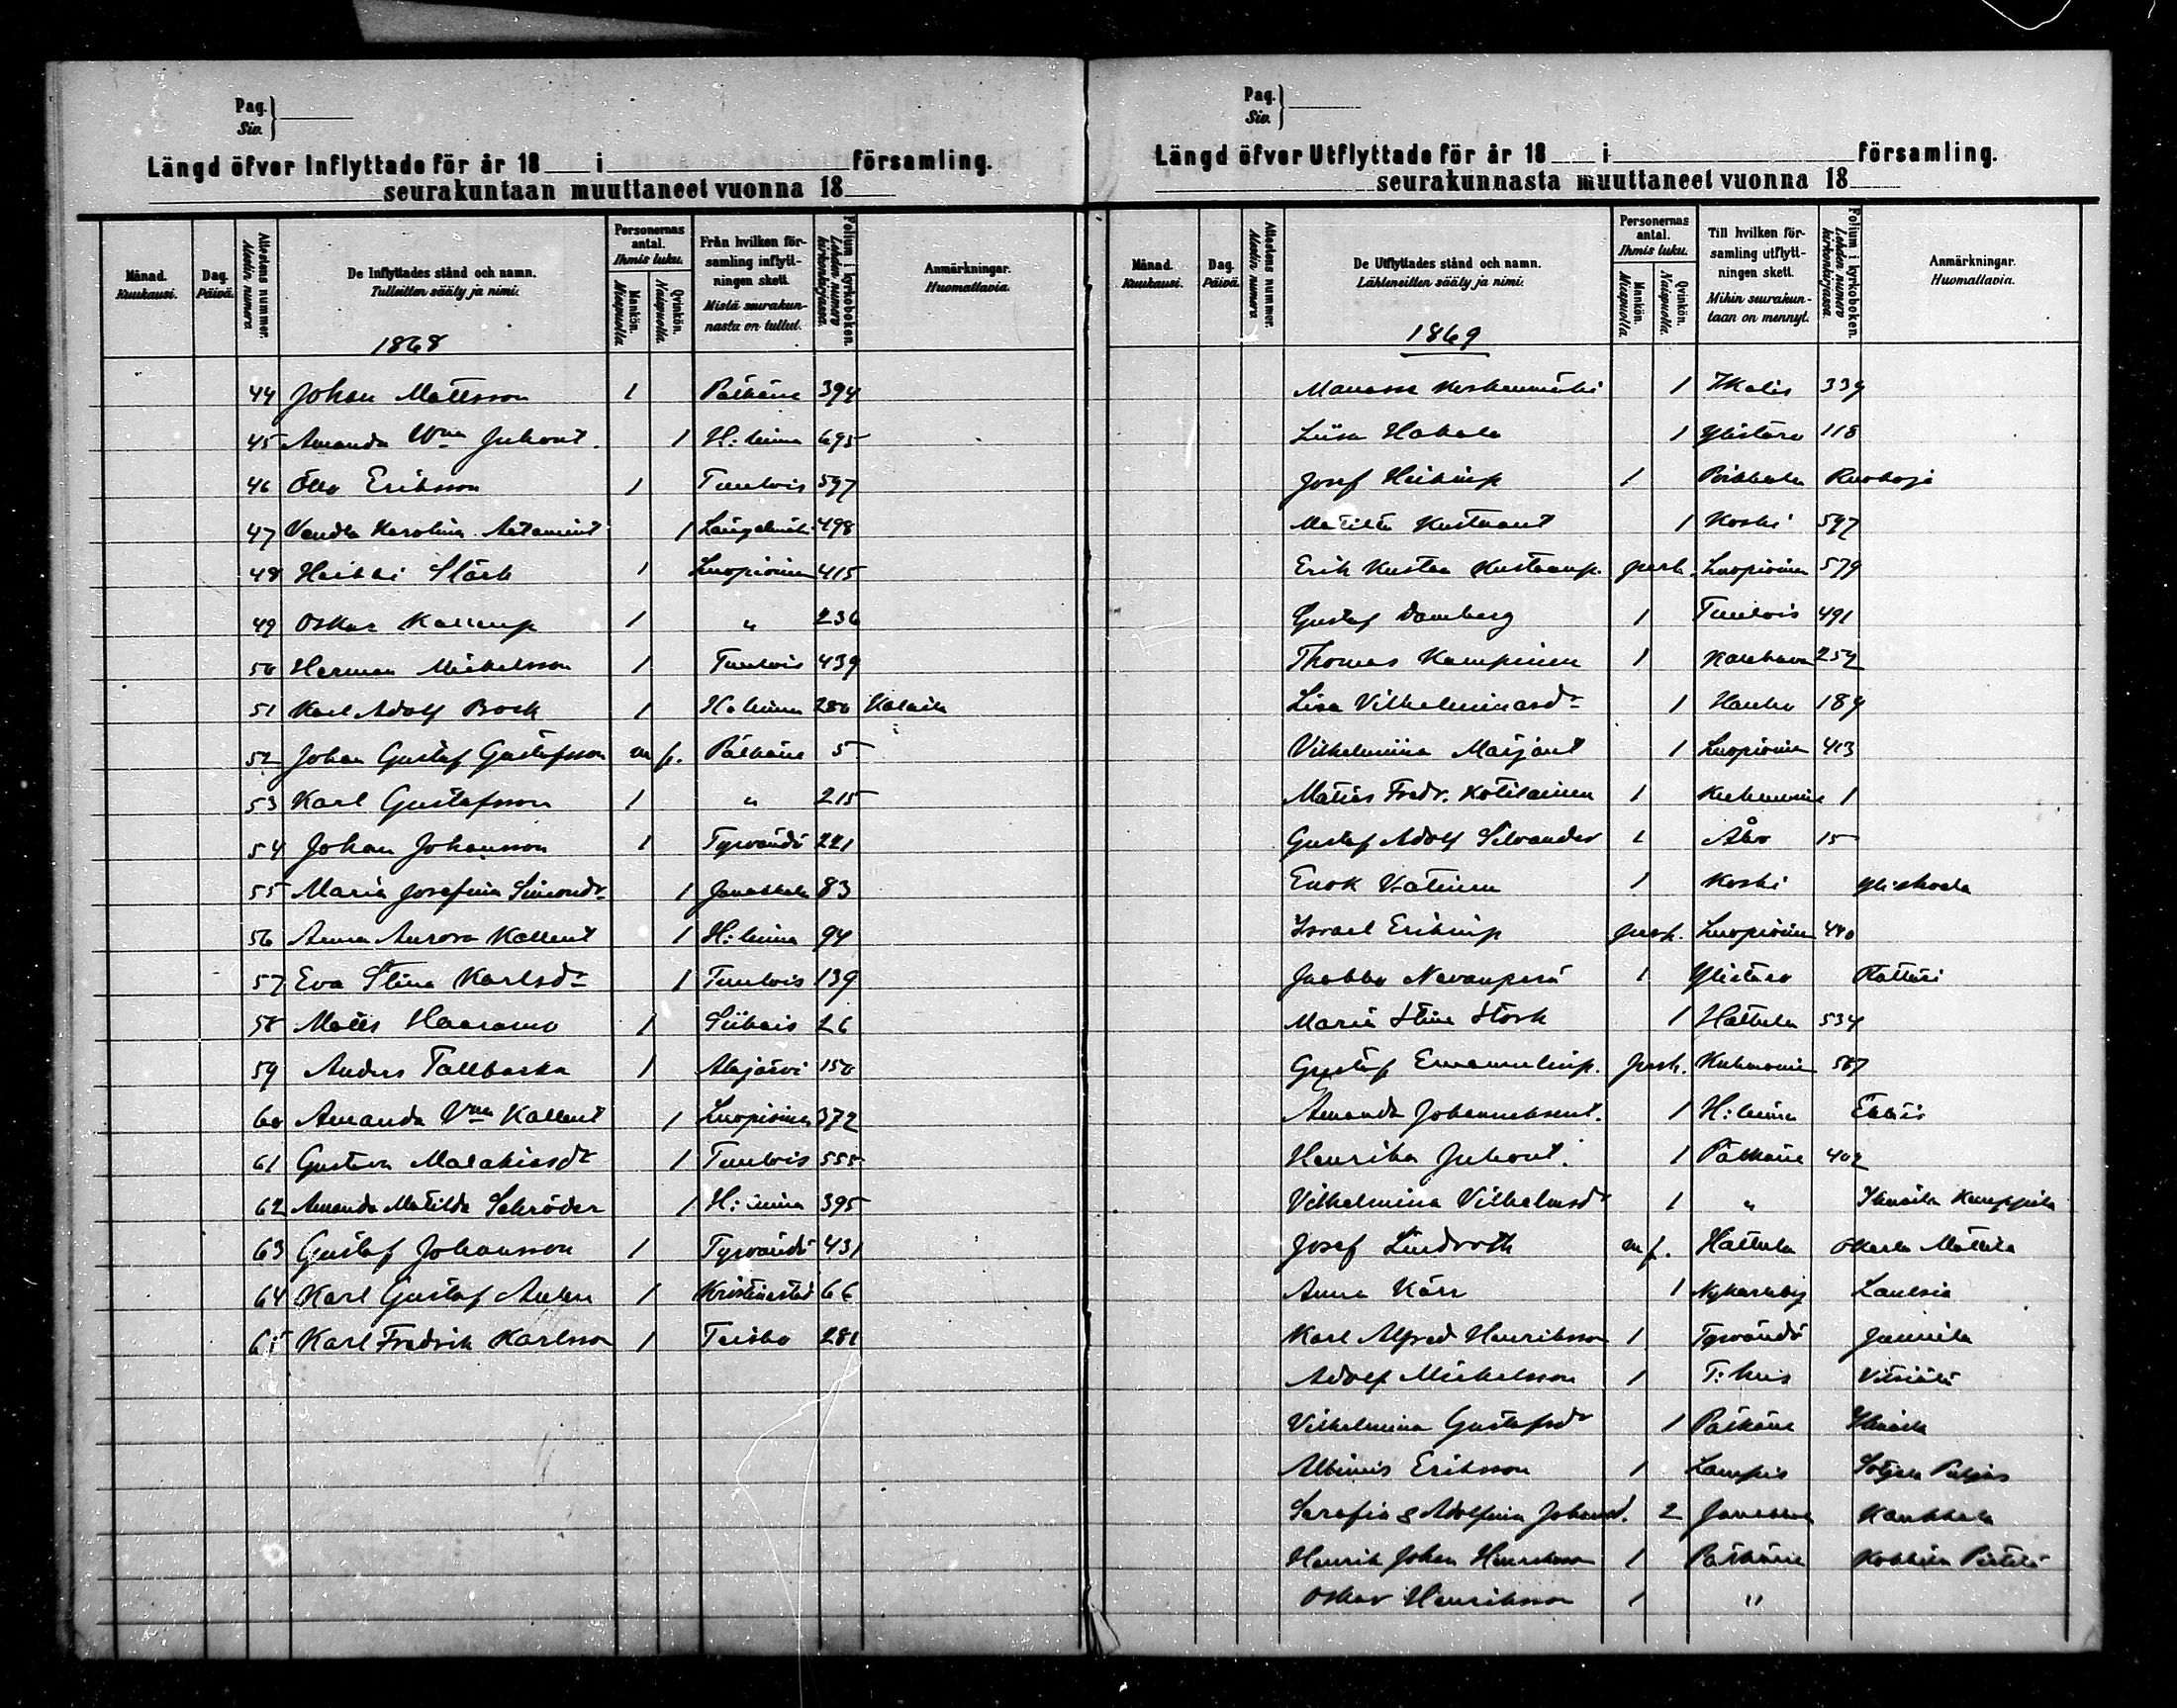 Pag.
Siv.
Längd öfver Inflyttade för år 18 i församling.
seurakuntaan muuttaneet vuonna 18
Månad. Kuukausi.
Dag. Päivä.
Attestens nummer. Alestin numero.
De Inflyttades stånd och namn.
Tulleitten sääty ja nimi.
1868
Personernas antal. Ihmis luku.
Mankön. Miespuolia.
Qvinkön. Naispuolia.
Från hvilken församling inflyttningen skett.
Mistä seurakunnasta on tullut.
Folium i kyrkoboken. Lehden numero kirkonkirjassa.
Anmärkningar. Huomattavia.
44 Johan Mattsson 1 Pälkäne 394
45 Amanda Wma Juhont. 1 H:linna 695
46 Otto Eriksson 1 Tuulois 597
47 Vendla Karolina 1 Längelmäki 498
48 Heikki Stärk 1 Luopioinen 415
49 Oskar Kallenp 1 " 236
50 Herman Mickelsson 1 Tuulois 439
51 Karl Adolf Bock 1 H:linna 280
52 Johan Gustaf Gustafsson m f. Pälkäne 5
53 Karl Gustafsson 1 " 215
54 Johan Johansson 1 Tyrvändö 221
55 Maria Josefina Simondr 1 Janakkala 83
56 Anna Aurora Kallent 1 H:linna 94
57 Eva Stina Karlsdr 1 Tuulois 139
58 Matts Haaramo 1 Siikais 26
59 Anders Tallbacka 1 Alajärvi 150
60 Amanda Vma Kallent 1 Luopioinen 372
61 Gustava Malakiasdr 1 Tuulois 555
62 Amanda Matilda Schröder 1 H:linna 395
63 Gustaf Johansson 1 Tyrvändö 431
64 Karl Gustaf 1 Kristinestad 66
65 Karl Fredrik Karlsson 1 Teisko 281
Pag.
Siv.
Längd öfver Utflyttade för år 18 i församling.
seurakunnasta muuttaneet vuonna 18
Månad. Kuukausi.
Dag. Päivä.
Attestens nummer. Alestin numero.
De Utflyttades stånd och namn.
Lähteneitten sääty ja nimi.
1869
Personernas antal. Ihmis luku.
Mankön. Miespuolia.
Qvinkön. Naispuolia.
Till hvilken församling utflyttningen skett.
Mihin seurakuntaan on mennyt.
Folium i kyrkoboken. Lehden numero kirkonkirjassa.
Anmärkningar. Huomattavia.
Manasse Koskenmäki 1 Ikalis 339
Liisa Hakala 1 Ylistaro 118
Josef Heikinp 1 Pirkkala
Matilda Kustaant 1 Koski 597
Erik Kustaa Kustaanp. perh. Luopioinen 579
Gustaf Damberg 1 Tuulois 491
Thomas Kamppinen 1 Kauhava 252
Lisa Vilhelminasdr 1 Hauho 189
Vilhelmiina Maijant 1 Luopioinen 413
Matias Fredr. Kotilainen 1 Kuhmoinen 1
Gustaf Adolf Silvander 1 Åbo 15
Enok Vatinen 1 Koski
Israel Erikinp perh. Luopioinen 440
Jaakko Nevanperä 1 Ylistaro
Maria Stina Stork 1 Hattula 534
Gustaf Emanuelinp. perh. Kuhmoinen 567
Amanda Johanneksent. 1 H:linna
Henrika Juhont. 1 Pälkäne 402
Vilhelmina Vilhelmsdr 1 "
Josef Lindroth m f. Hattula Mattila
Anna Kärr 1 Nykarleby
Karl Alfred Henriksson 1 Tyrvändö
Adolf Mickelsson 1 T:hus
Vilhelmina Gustafsdr 1 Pälkäne
Albinus Eriksson 1 Lampis
Serafia & Adolfina Johansd. 2 Janakkala Kankkala
Henrik Johan Henriksson 1 Pälkäne
Oskar Henriksson 1 "